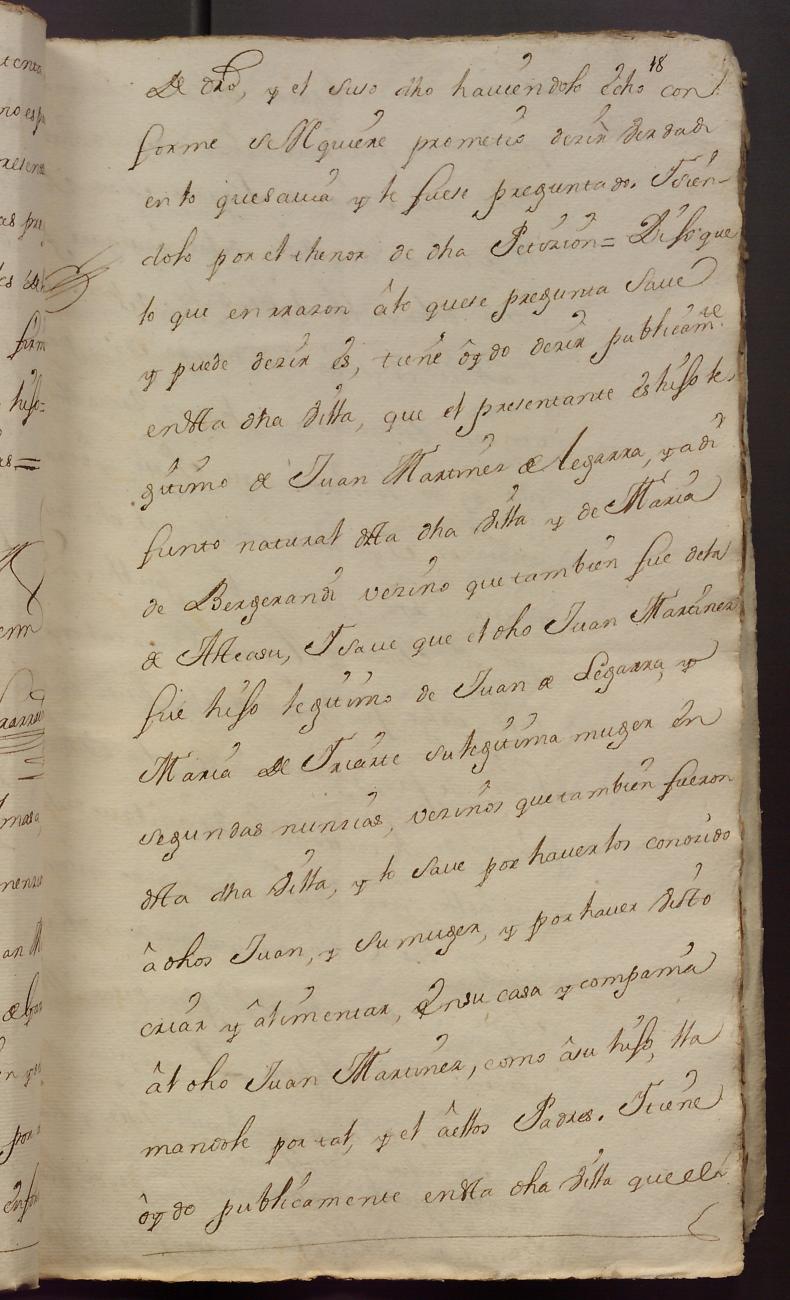 18
De dro, y el suso dho haviendolo echo con
forme se rrequiere prometio dezir Verdad
en lo que savia y le fuese preguntado. Y sien-
dolo por el thenor de dha Petizion= Dijo que
lo que en rrazon âlo que se pregunta save
y puede dezir es, tiene ôydo dezir publicamte
en esta dha Villa, que el presentante es hijo le
gitimo de Juan Martinez de Legarra, ya di
funto natural desta dha Villa y de Maria
de Bergerandi vezino que tambien fue dela
de Asteasu, Y save que el dho Juan Martinez
fue hijo legitimo de Juan de Legarra, y
Maria de Yriarte su legitima muger en
segundas nunzias, vezinos que tambien fueron
desta dha Villa, y lo save por haverlos conozido
â dhos Juan, y su muger, y por haver Visto
criar y âlimentar, en su casa y compania
âl dho Juan Martinez, como âsu hijo, lla
mandole por tal, y el âellos Padres. Y tiene
ôydo publicamente en esta dha Villa que el